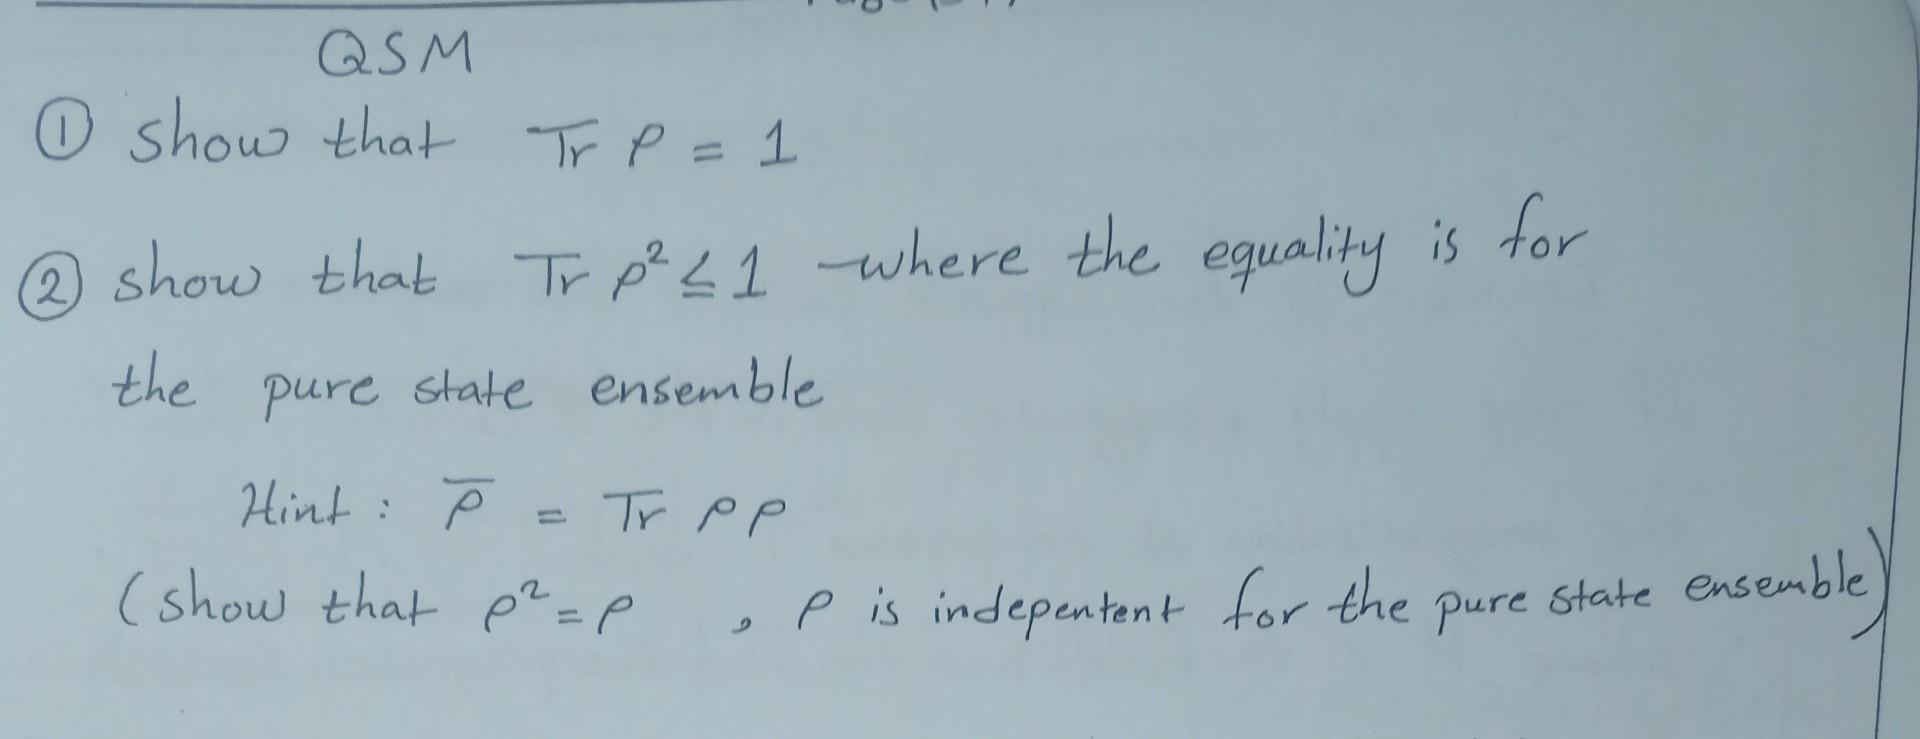 QSM
① show that Tr ρ = 1
② show that Tr ρ² ≤ 1 where the equality is for
the pure state ensemble
Hint : ρ̅ = Tr ρρ
(show that ρ² = ρ , ρ is indepentent for the pure state ensemble)